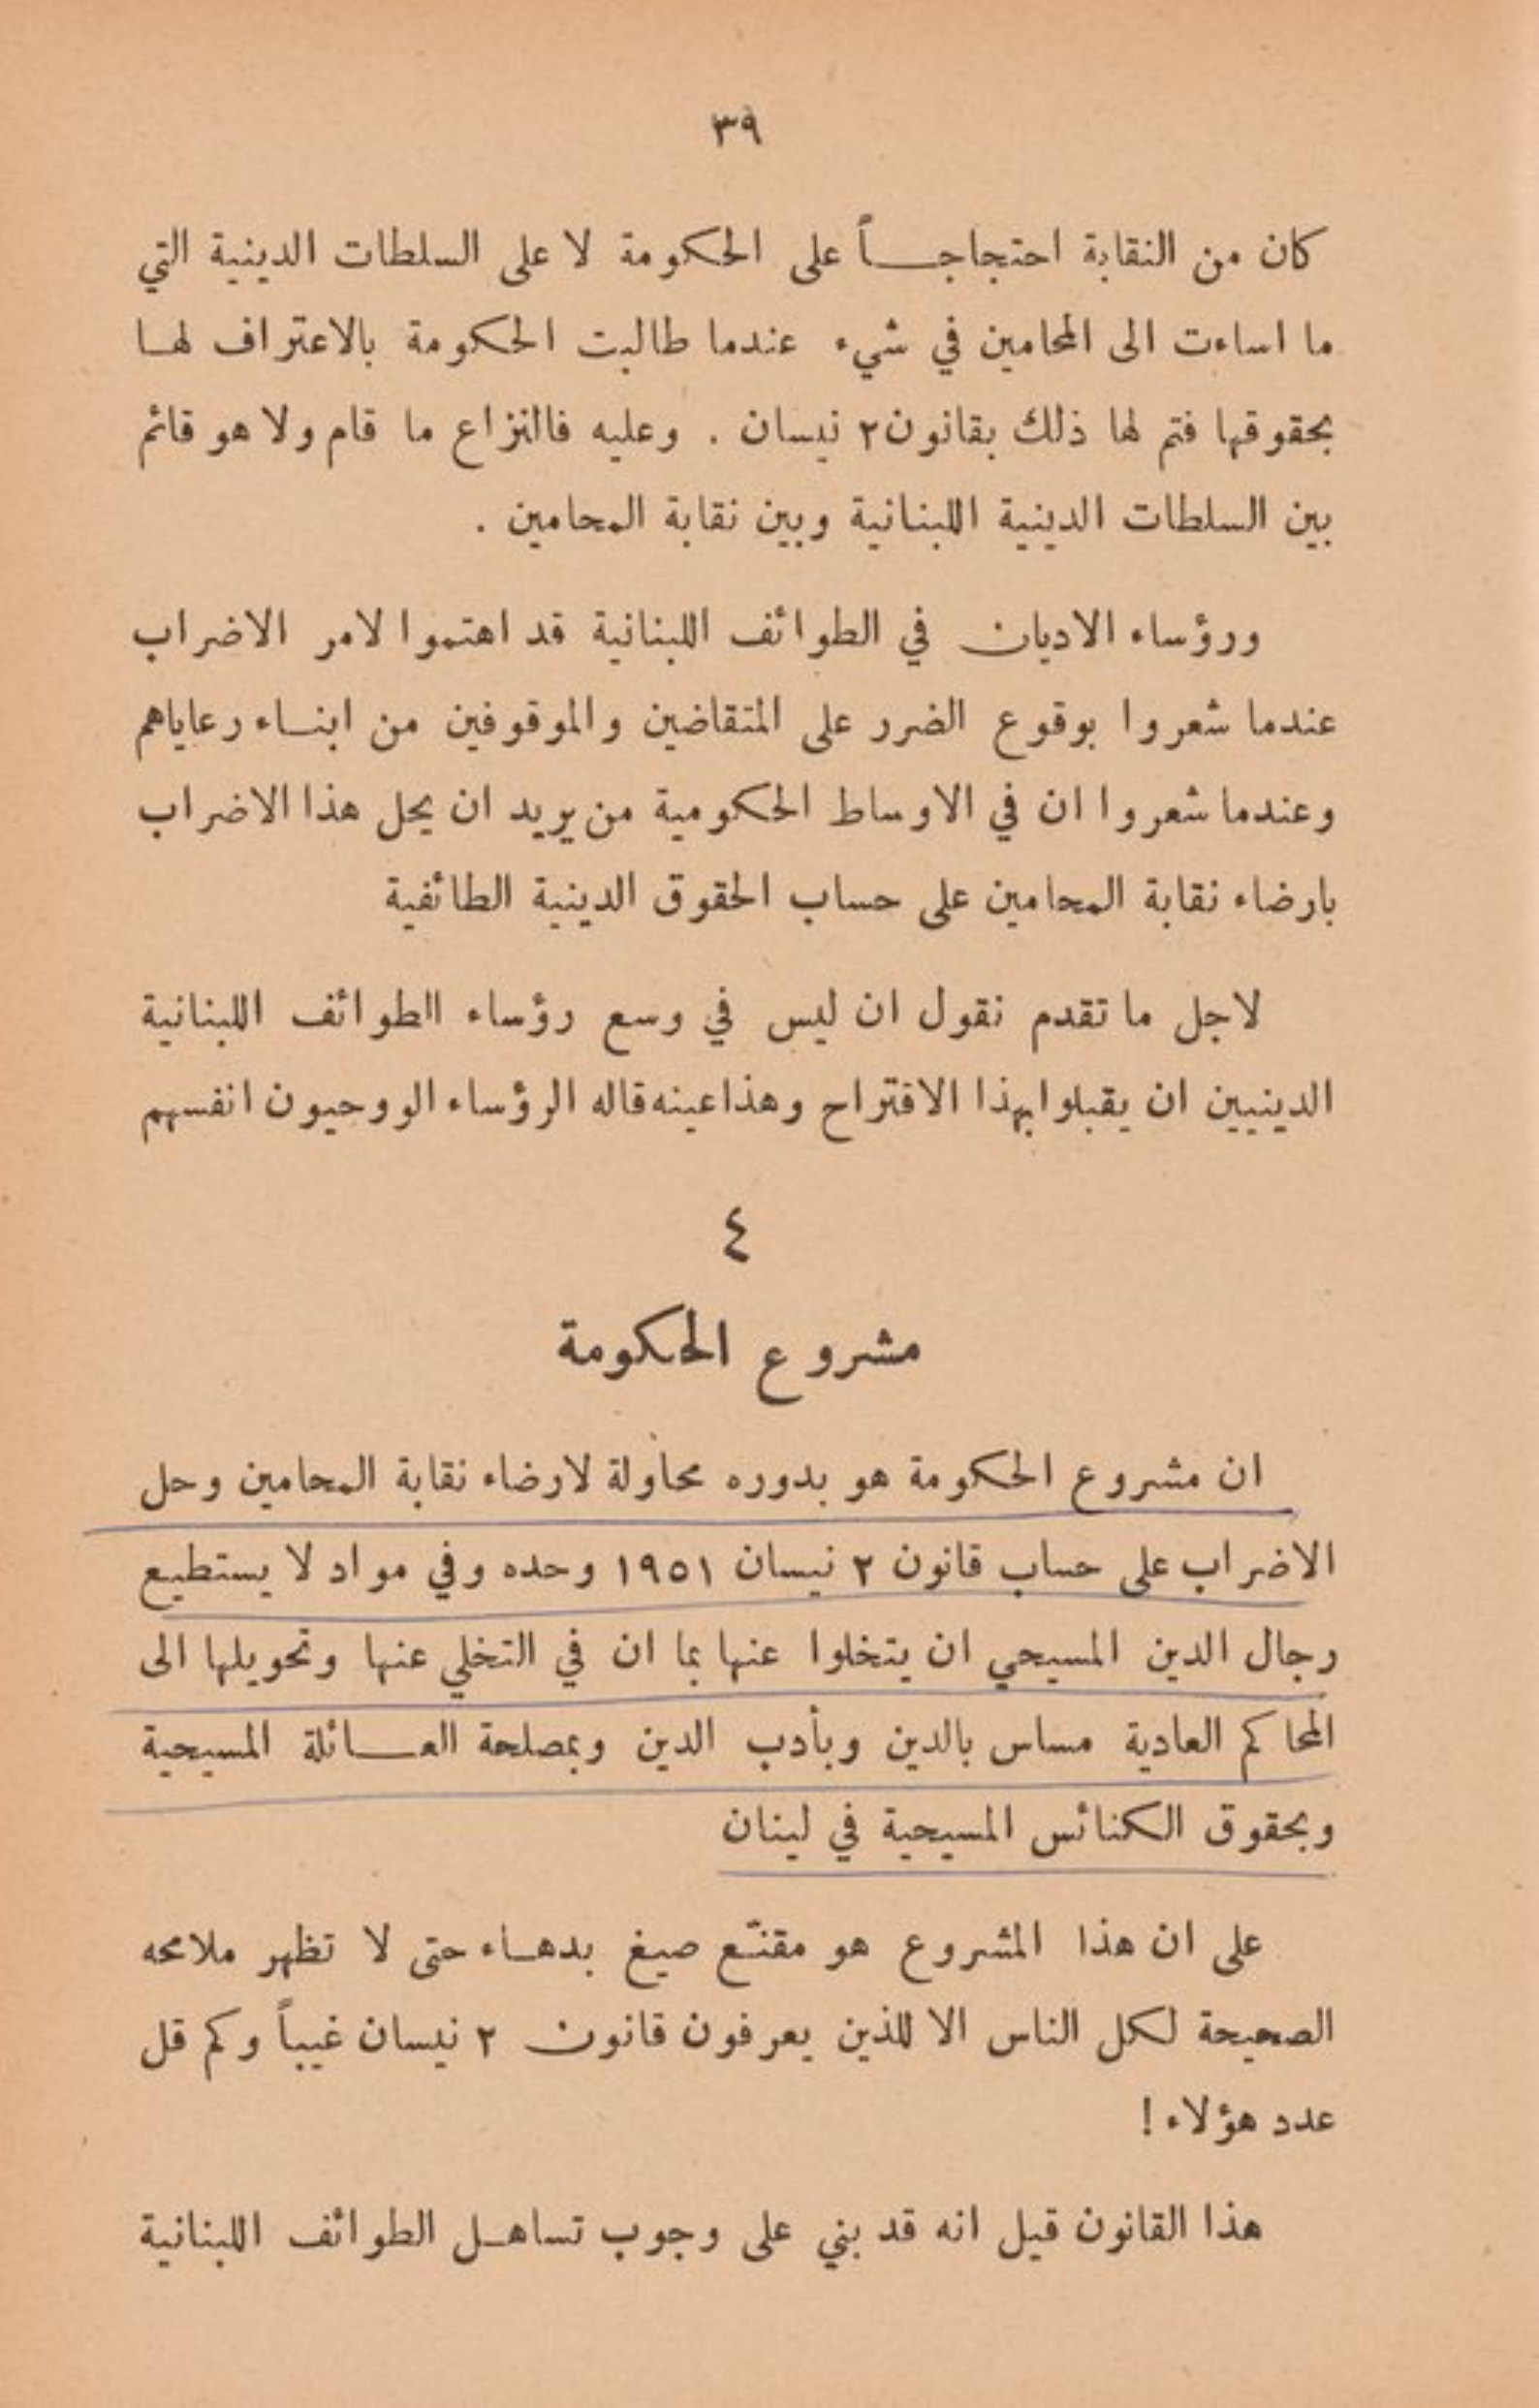 ٣٩
كان من النقابة احتجاجـــاً على الحكومة لا على السلطات الدينية التي
ما اساءت الى المحامين في شيء عندما طالبت الحكومة بالاعتراف لهـا
بحقوقها فتم لها ذلك بقانون ٢ نيسان . وعليه فالنزاع ما قام ولا هو قائم
بين السلطات الدينية اللبنانية وبين نقابة المحامين .
ورؤساء الاديان في الطوائف اللبنانية قد اهتموا لامر الاضراب
عندما شعروا بوقوع الضرر على المتقاضين والموقوفين من ابنـاء رعاياهم
وعندما شعروا ان في الاوساط الحكومية من يريد ان يحل هذا الاضراب
بارضاء نقابة المحامين على حساب الحقوق الدينية الطائفية
لاجل ما تقدم نقول ان ليس في وسع رؤساء الطوائف اللبنانية
الدينيين ان يقبلوا بهذا الاقتراح وهذا عينه قاله الرؤساء الووحيون انفسهم
٤
مشروع الحكومة
ان مشروع الحكومة هو بدوره محاولة لارضاء نقابة المحامين وحل
الاضراب على حساب قانون ٢ نيسان ١٩٥١ وحده وفي مواد لا يستطيع
رجال الدين المسيحي ان يتخلوا عنها بما ان في التخلي عنها وتحويلها الى
المحاكم العادية مساس بالدين وبأدب الدين وبمصلحة العـــائلة المسيحية
وبحقوق الكنائس المسيحية في لبنان
على ان هذا المشروع هو مقنّع صيغ بدهـاء حتى لا تظهر ملامحه
الصحيحة لكل الناس الا للذين يعرفون قانون ٢ نيسان غيباً وكم قل
عدد هؤلاء !
هذا القانون قيل انه قد بني على وجوب تساهـل الطوائف اللبنانية